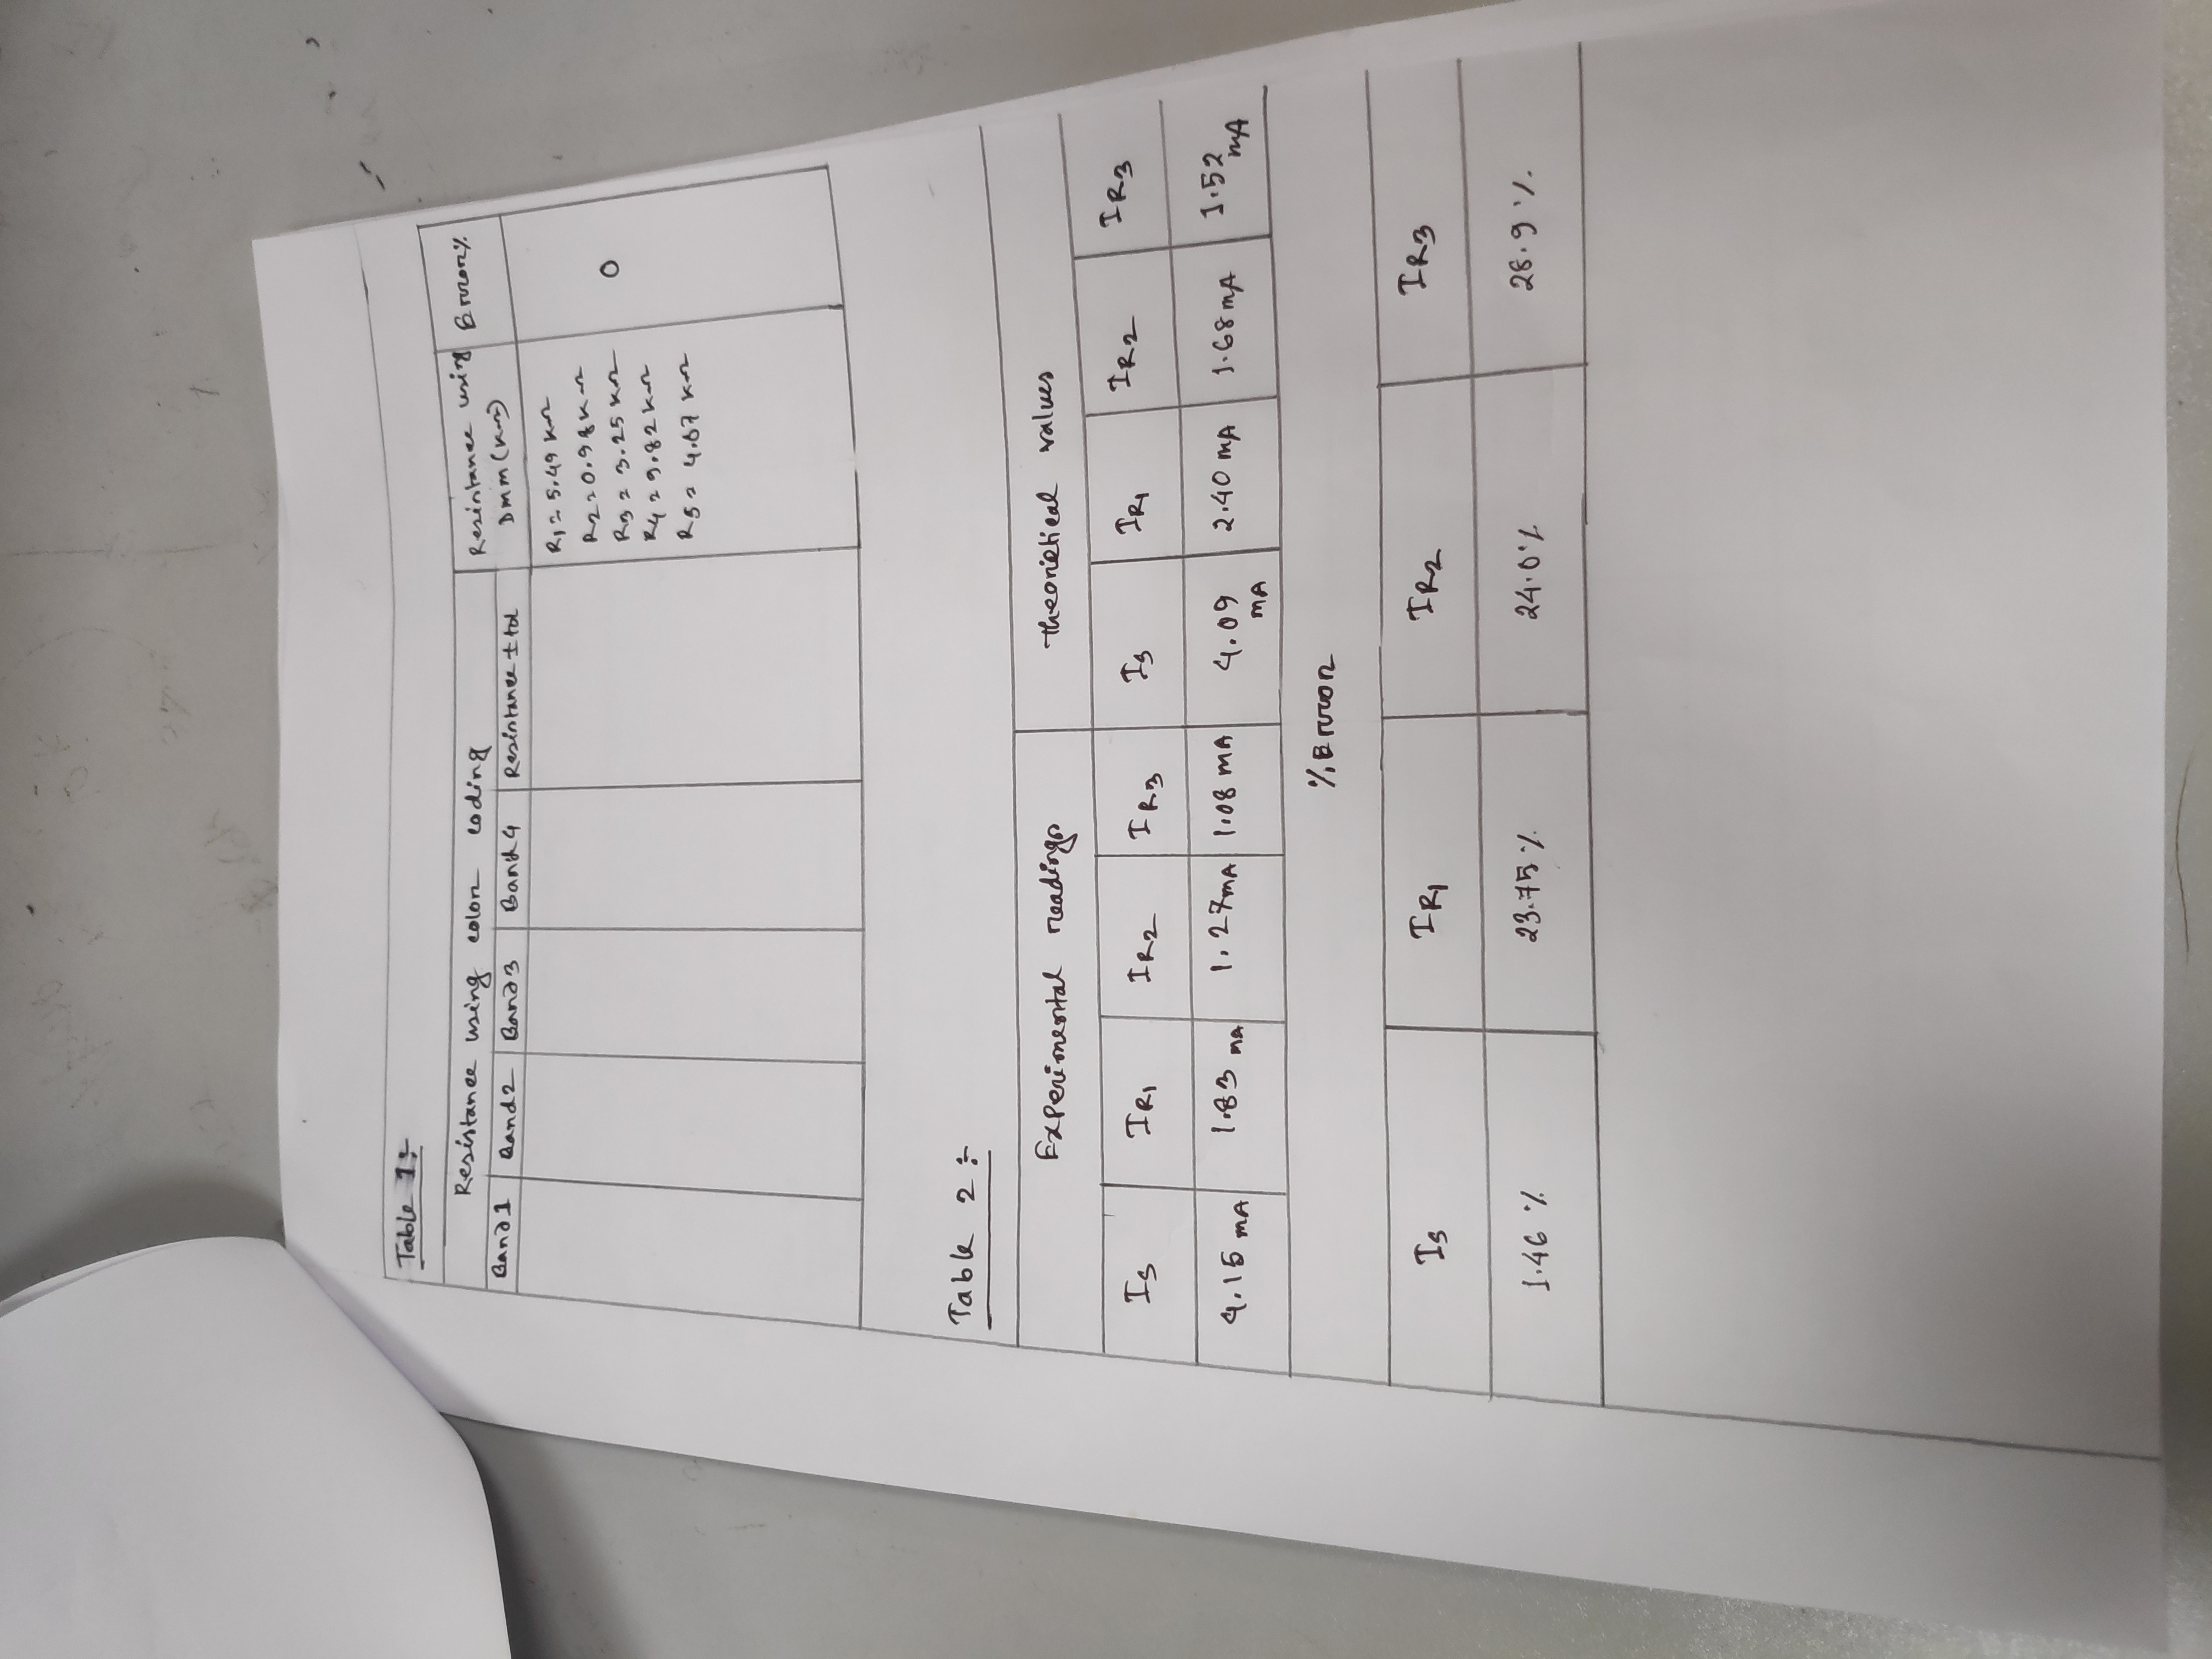 Table 1:-
Resistance using color coding
Resistance using
DMM (KΩ)
Error%
Band1 Band2 Band3 Band4 Resistance ± tol
R1 = 5.49 KΩ
R2 = 0.98 KΩ
R3 = 3.25 KΩ
R4 = 9.82 KΩ
R5 = 4.67 KΩ
0
Table 2 :-
Experimental readings Theoretical values
Is IR1 IR2 IR3 Is IR1 IR2 IR3
4.15 mA 1.83 mA 1.27mA 1.08 mA 4.09 mA 2.40 mA 1.68mA 1.52 mA
% Error
Is IR1 IR2 IR3
1.46 % 23.75 % 24.0% 28.9 %